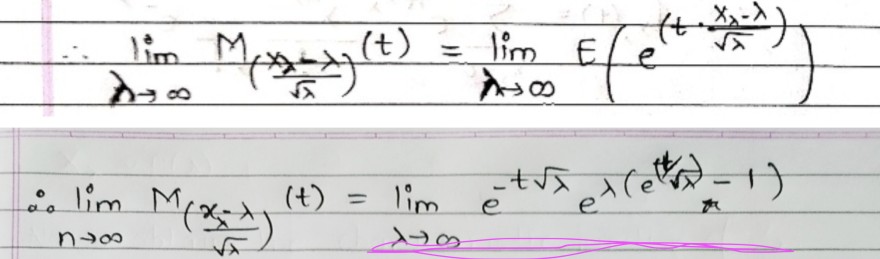 ∴ lim_{λ→∞} M_{(X_λ-λ / √λ)}(t) = lim_{λ→∞} E(e^{(t · X_λ-λ / √λ)})
∴ lim_{n→∞} M_{(X_λ-λ / √λ)}(t) = lim_{λ→∞} e^{-t√λ} e^{λ(e^{(t/√λ)} - 1)}